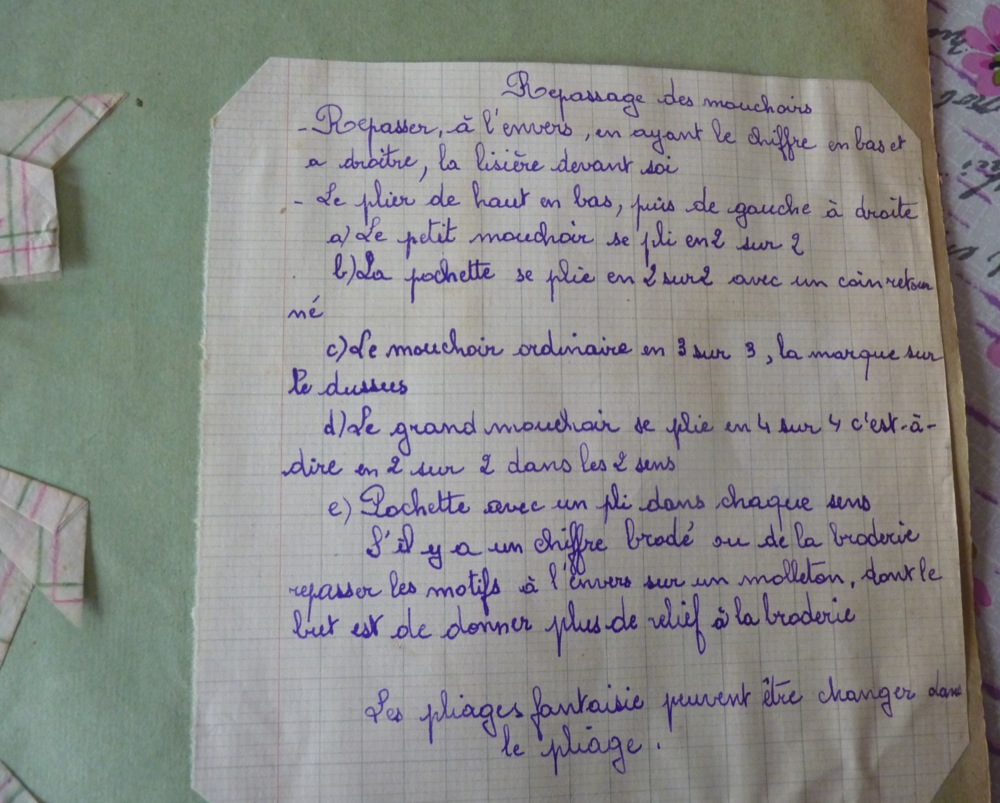 Repassage des mouchoirs
- Repasser, à l'envers, en ayant le chiffre en bas et
a droitre, la lisière devant soi
- Le plier de haut en bas, puis de gauche à droite
a) Le petit mouchoir se pli en 2 sur 2
b) La pochette se plie en 2 sur 2 avec un coin retour
né
c) Le mouchoir ordinaire en 3 sur 3, la marque sur
le dussus
d) Le grand mouchoir se plie en 4 sur 4 c'est-à-
dire en 2 sur 2 dans les 2 sens
e) Pochette avec un pli dans chaque sens
S'il y a un chiffre brodé ou de la broderie
repasser les motifs à l'envers sur un molleton, dont le
but est de donner plus de relief à la broderie
Les pliages fantaisie peuvent être changer dans
le pliage.